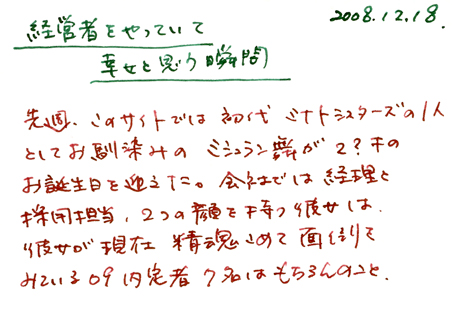 2008.12.18.
経営者をやっていて
幸せと思う瞬間
先週、このサイトでは初代ミナトシスターズの1人
としてお馴染みのミシュラン舞が2?才の
お誕生日を迎えた。会社では経理と
採用担当、2つの顔を持つ彼女は、
彼女が現在精魂こめて面倒を
みている09内定者7名はもちろんのこと、